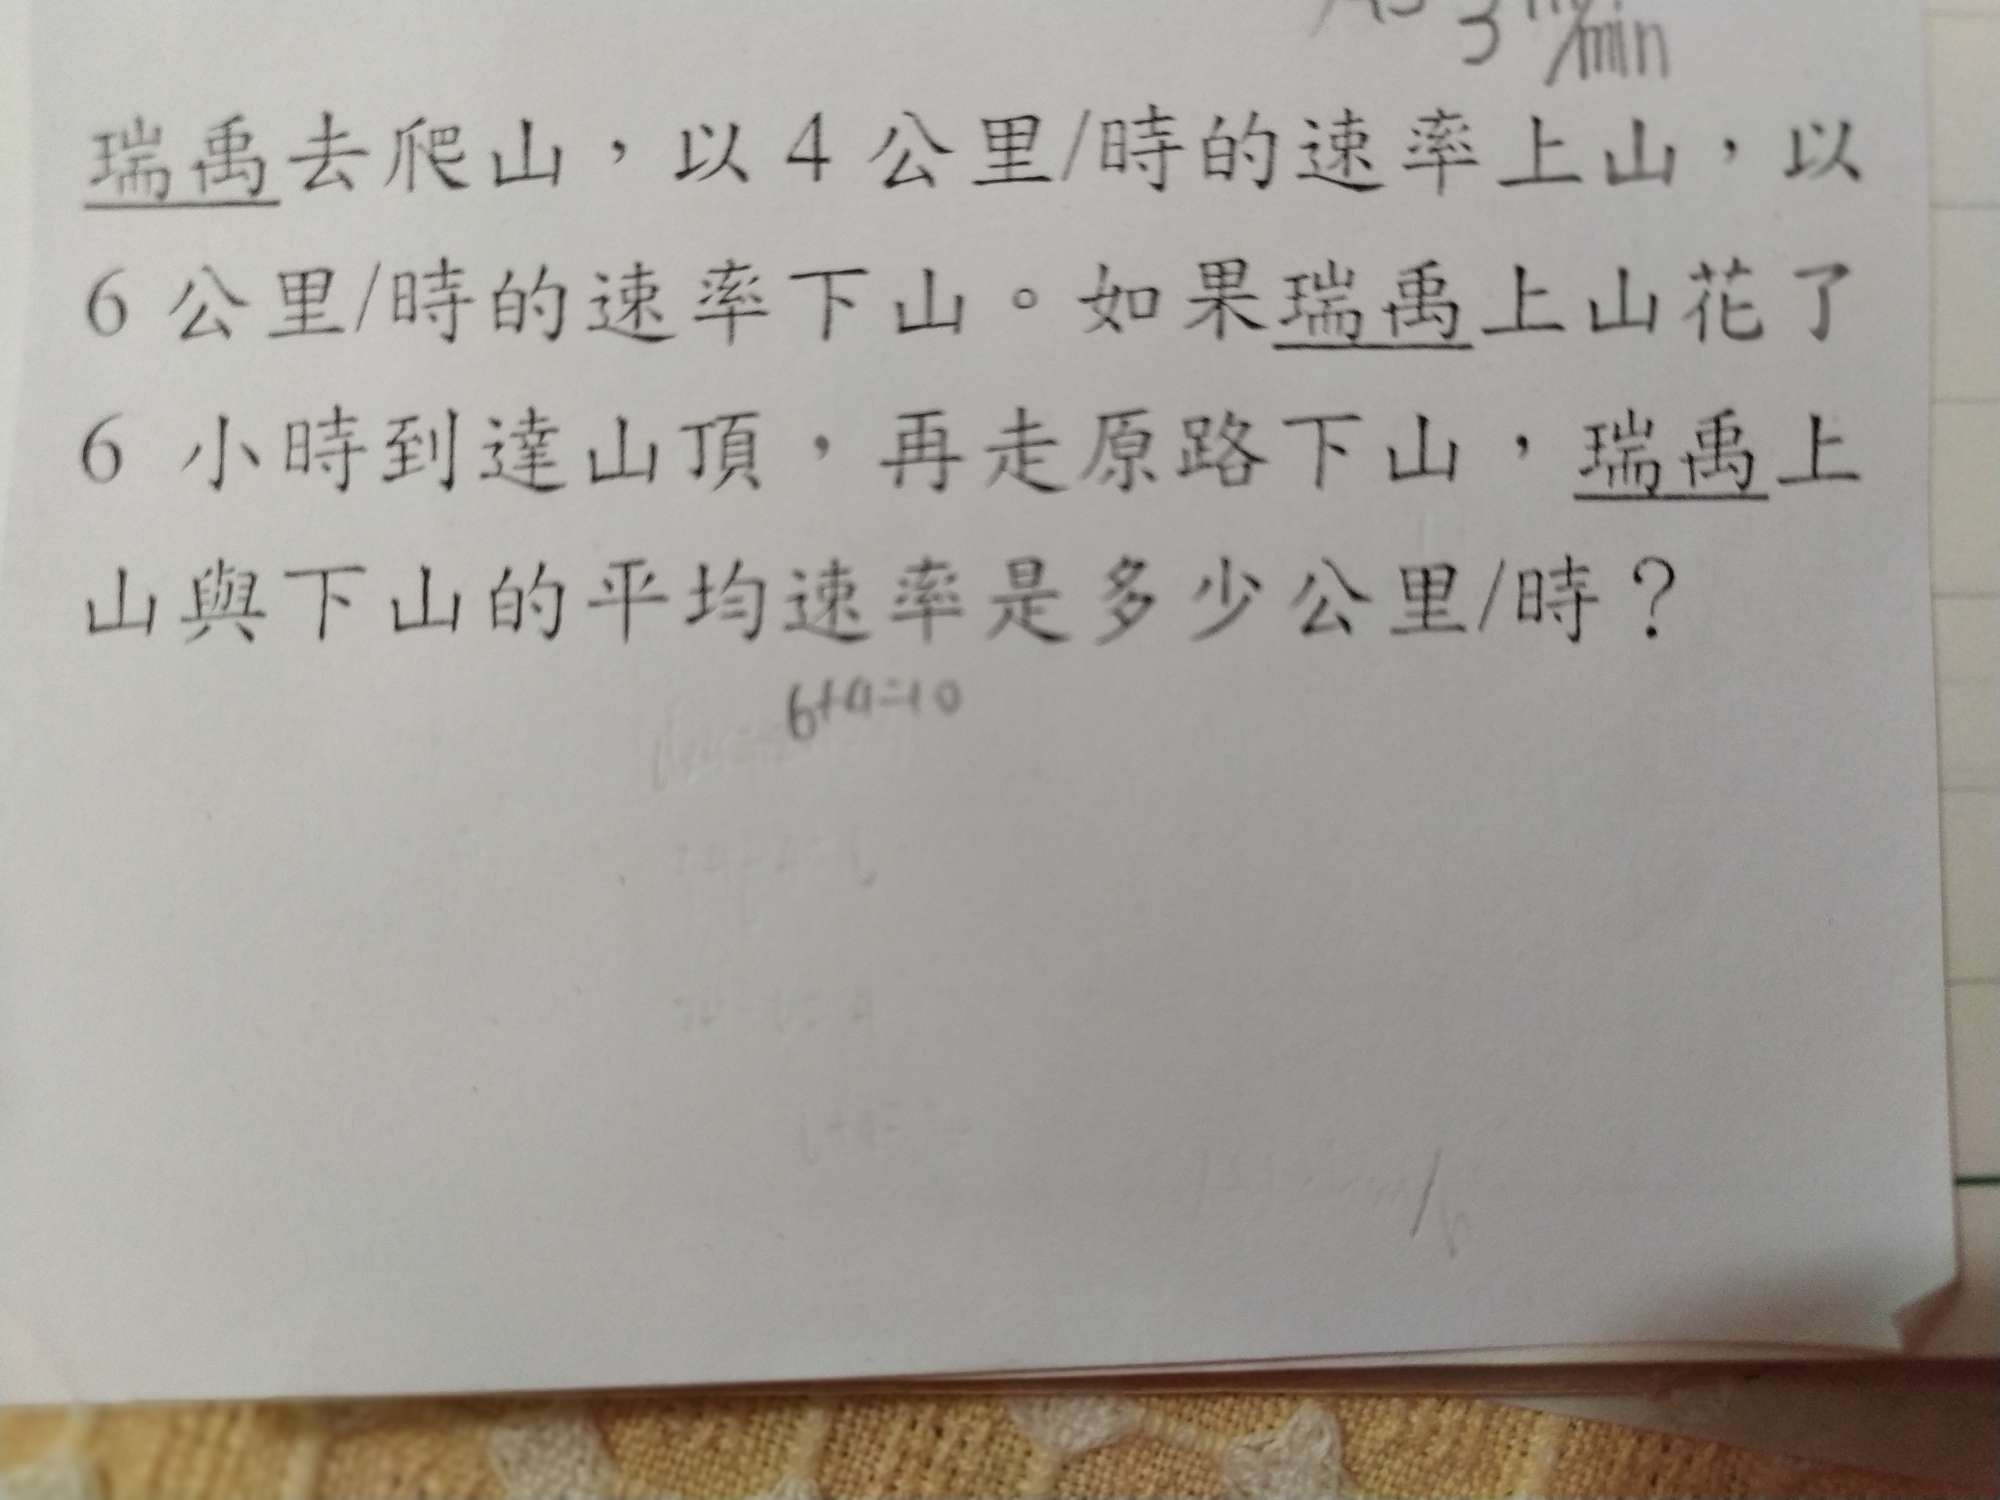 3 /min
瑞禹去爬山，以4公里/時的速率上山，以
6公里/時的速率下山。如果瑞禹上山花了
6 小時到達山頂，再走原路下山，瑞禹上
山與下山的平均速率是多少公里/時？
6+4=10